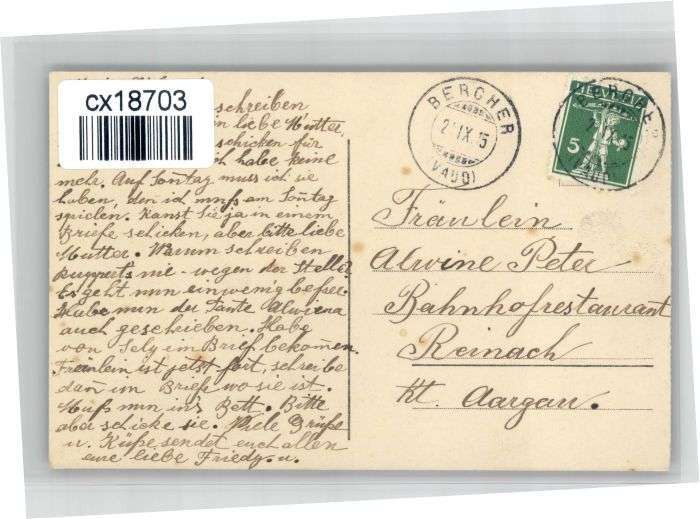 cx18703
schreiben
liebe Mutter,
schicken für
habe keine
mehr. Auf Sontag muss ich sie
haben, den ich muss am Sontag
spielen. Kanst Sie ja in einem
Briefe schicken, aber bitte liebe
Mutter. Warum schreiben
Rupperts nie - wegen der Stelle?
Es geht nun ein wenig besser.
Habe nun der Tante Alwiena
auch geschrieben. Habe
von im Brief bekommen.
Fräulein ist jetzt fort, schreibe
dan im Briefe wo sie ist.
Muß nun in's Bett. Bitte
aber schicke sie. Viele Grüße
u. Küße sendet euch allen
eure liebe Friedy.
BERCHER
2 IX 15
(VAUD)
BERCHER
5
Fräulein
Alwine Peter
Bahnhofrestaurant
Reinach
Kt. Aargau.